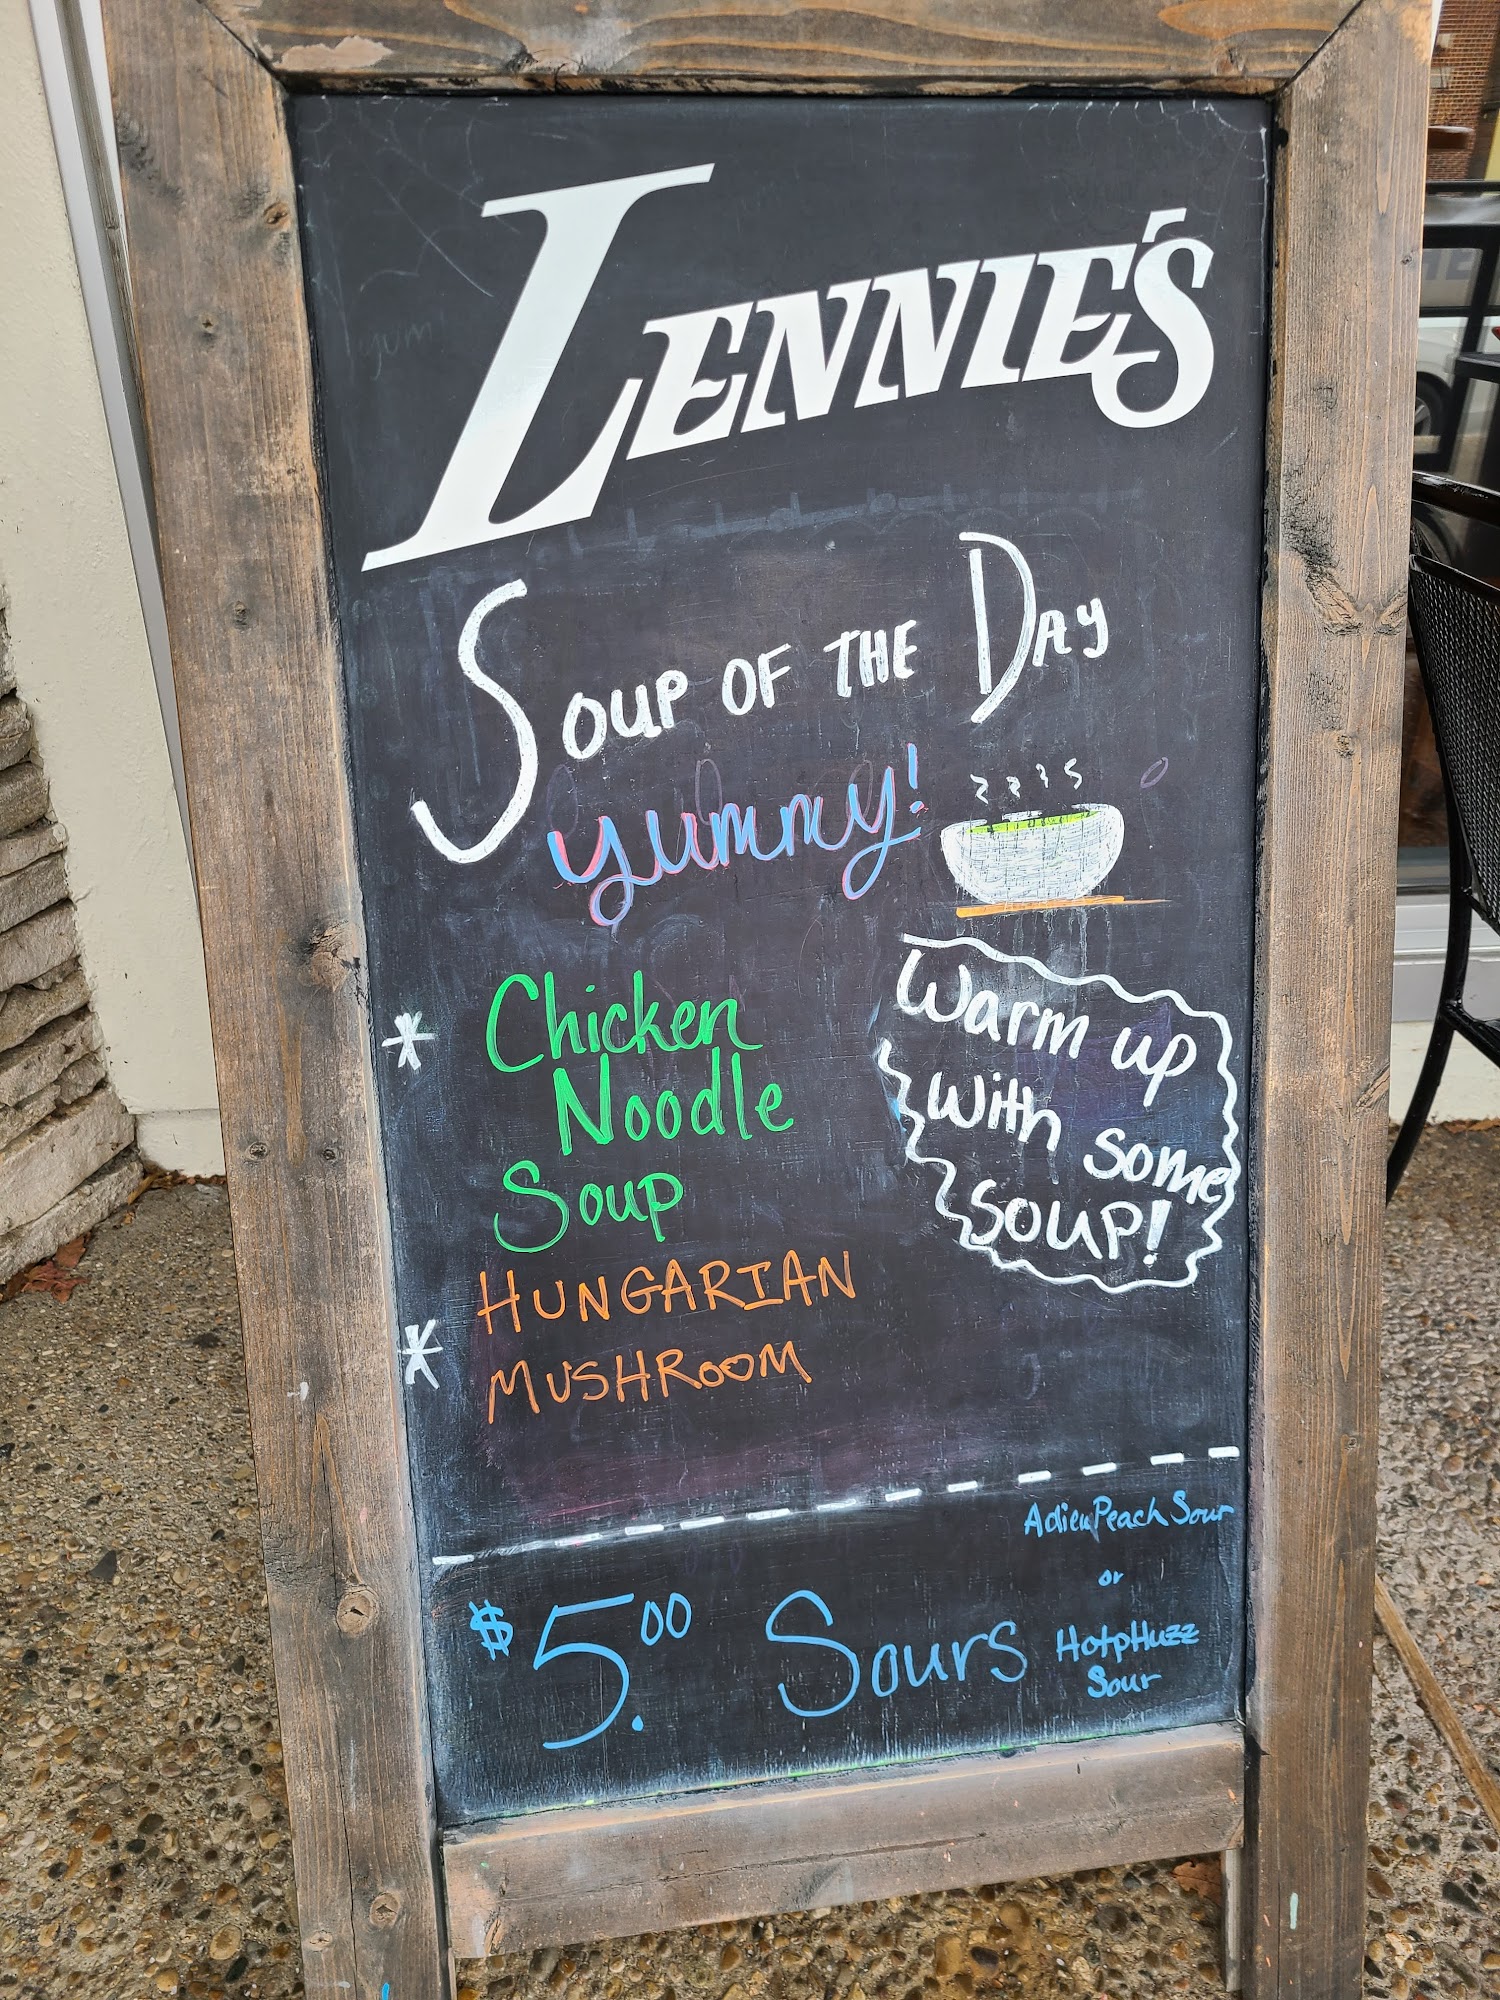 LENNIE'S
SOUP OF THE DAY
yummy!
* Chicken
Noodle
Soup
Warm up
with some
SOUP!
* HUNGARIAN
MUSHROOM
$5.00 Sours
Adieu Peach Sour
or
HotpHuzz
Sour